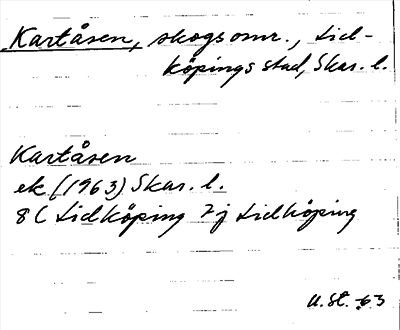 Kartåsen, skogsomr., Lid-
köpings stad, Skar. l.
Kartåsen
ek (1963) Skar. l.
8C Lidköping 7j Lidköping
U. St. 63